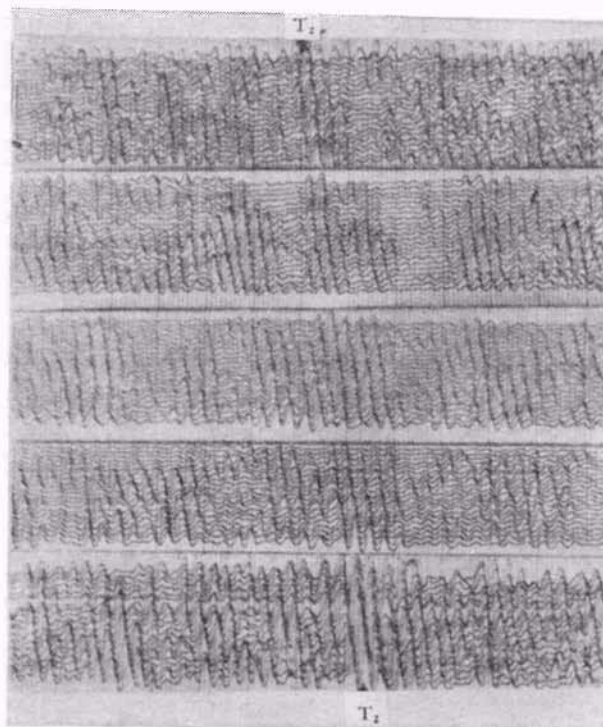 T₂
T₂